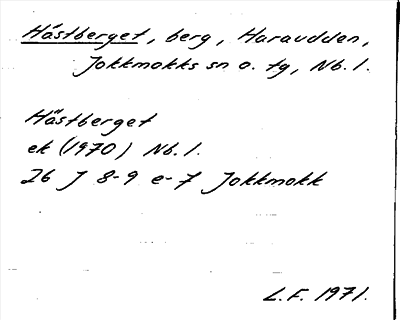 Hästberget, berg, Haraudden,
Jokkmokks sn o. tg, Nb. l.
Hästberget
ek (1970) Nb. l.
26 J 8-9 e-f Jokkmokk
L.F. 1971.